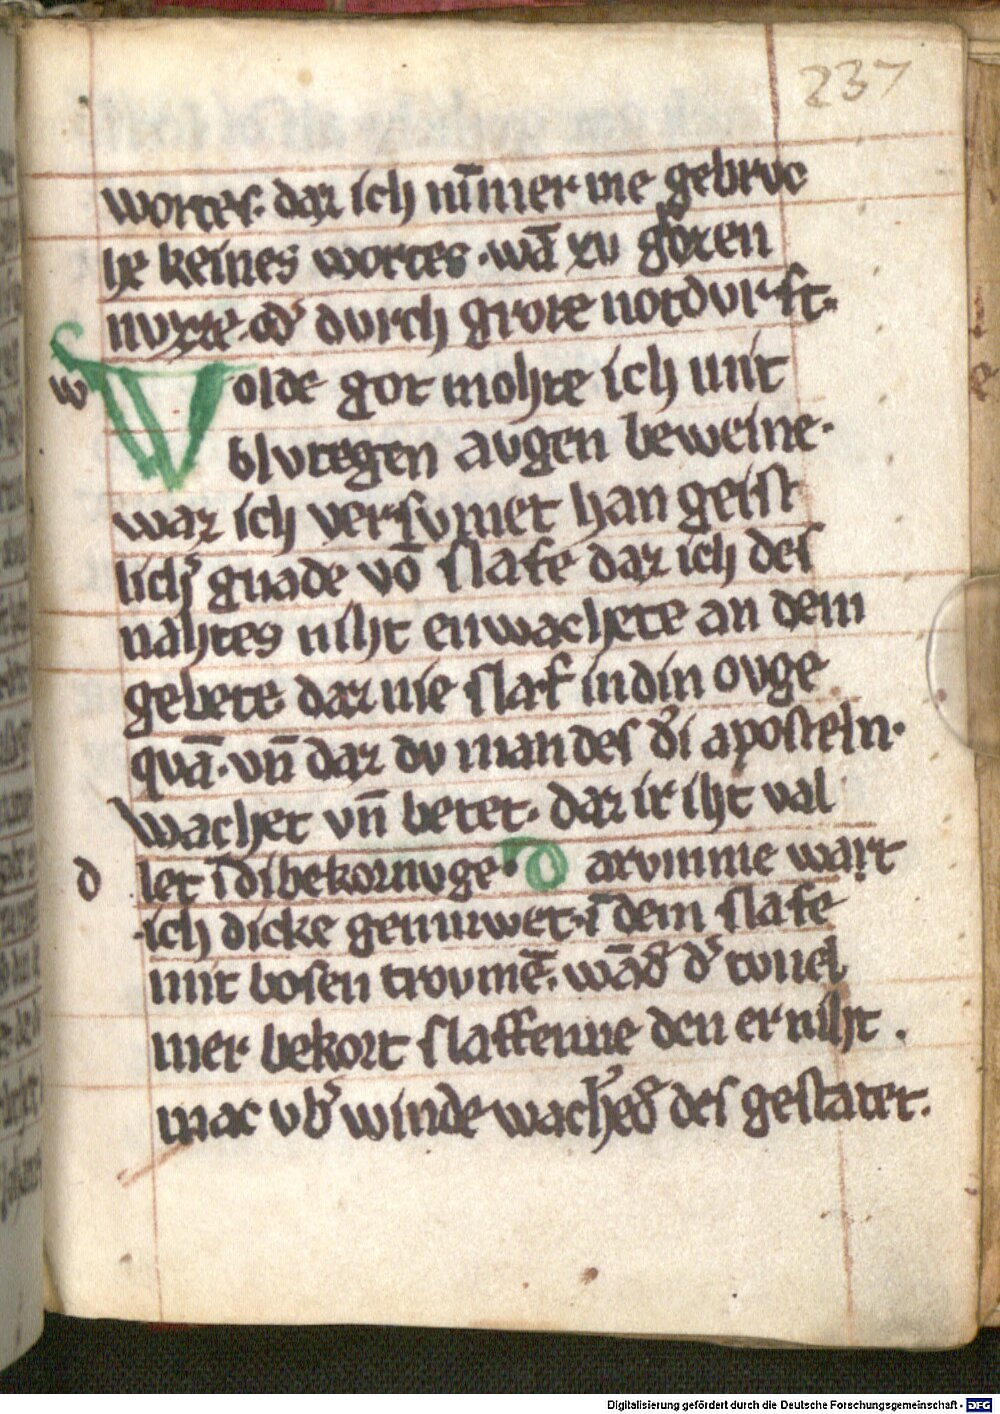 237
wortes. daz ich nūmer me gebruc
he keines wortes. wā zu gͦten
nuzze. od' durch groze notdurft.
w Wolde got mohte ich mit
blutegen augen beweine.
waz ich versumet han geist
lich' gnade vō slafe daz ich des
nahtes niht enwachete an dem
gebete. daz nie slaf in din ovge
quā. vn̄ daz du man des di aposteln.
wachet vn̄ betet. daz ir iht val
d let ī di bekorunge. Darumme wart
ich dicke genuwet. ī dem slafe
mit bosen troumē. wād' d' tuuel
mer bekort slaffenne den er niht.
mac vb'winde wach'ed' des gestatet.
Digitalisierung gefördert durch die Deutsche Forschungsgemeinschaft - DFG